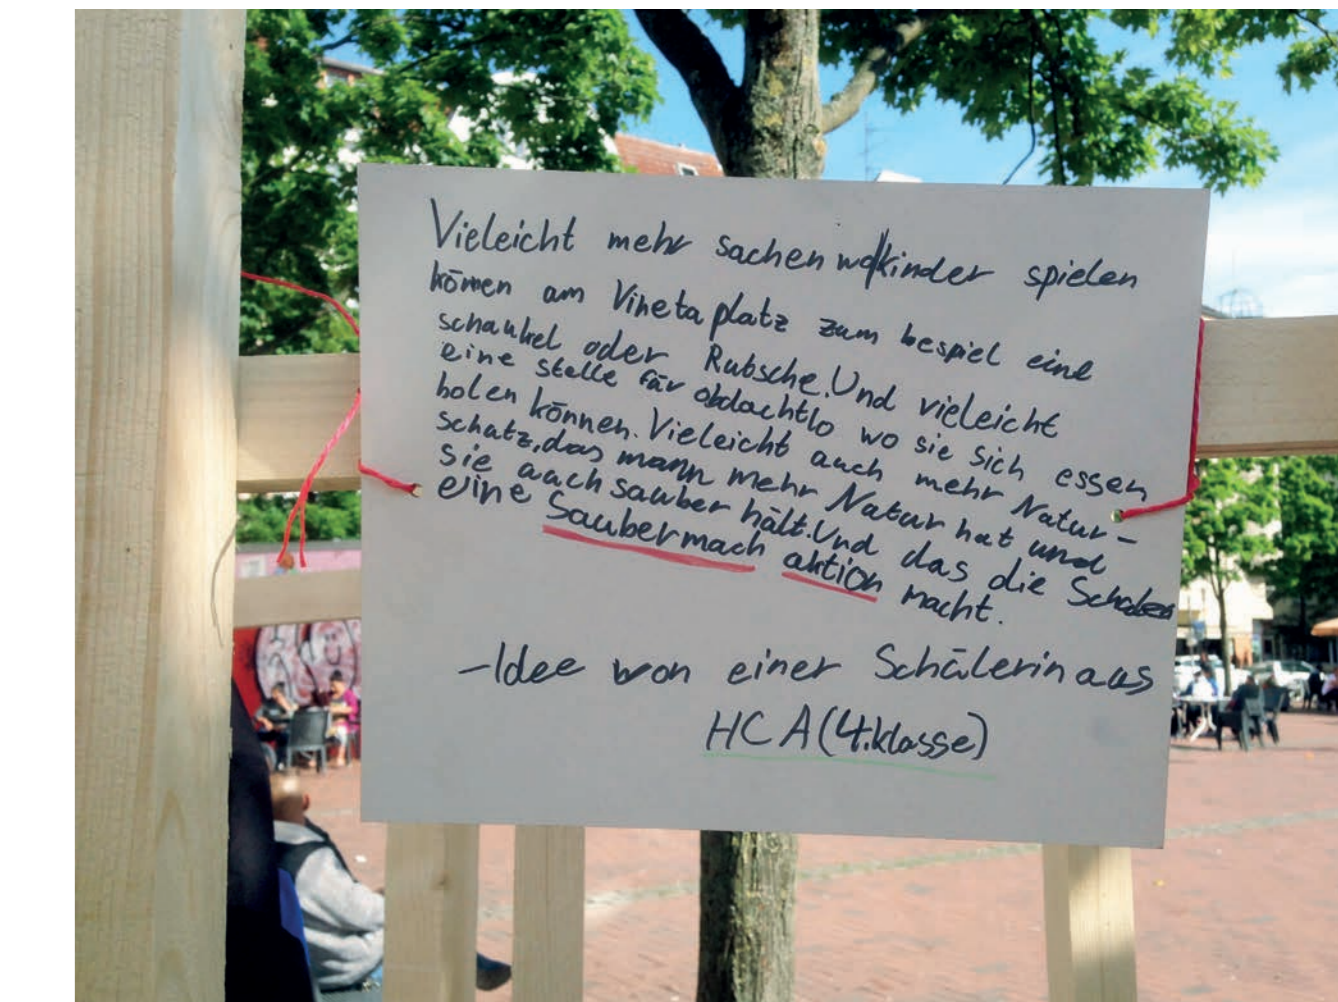 Vieleicht mehr sachen wo kinder spielen
können am Vinetaplatz zum bespiel eine
schaukel oder Rubsche. Und vieleicht
eine stelle für obdachtlo wo sie sich essen
holen können. Vieleicht auch mehr Natur-
schatz, das mann mehr Natur hat und
sie auch sauber hält. Und das die Schulen
eine Saubermach aktion macht.
-Idee von einer Schülerin aus
HCA (4.klasse)